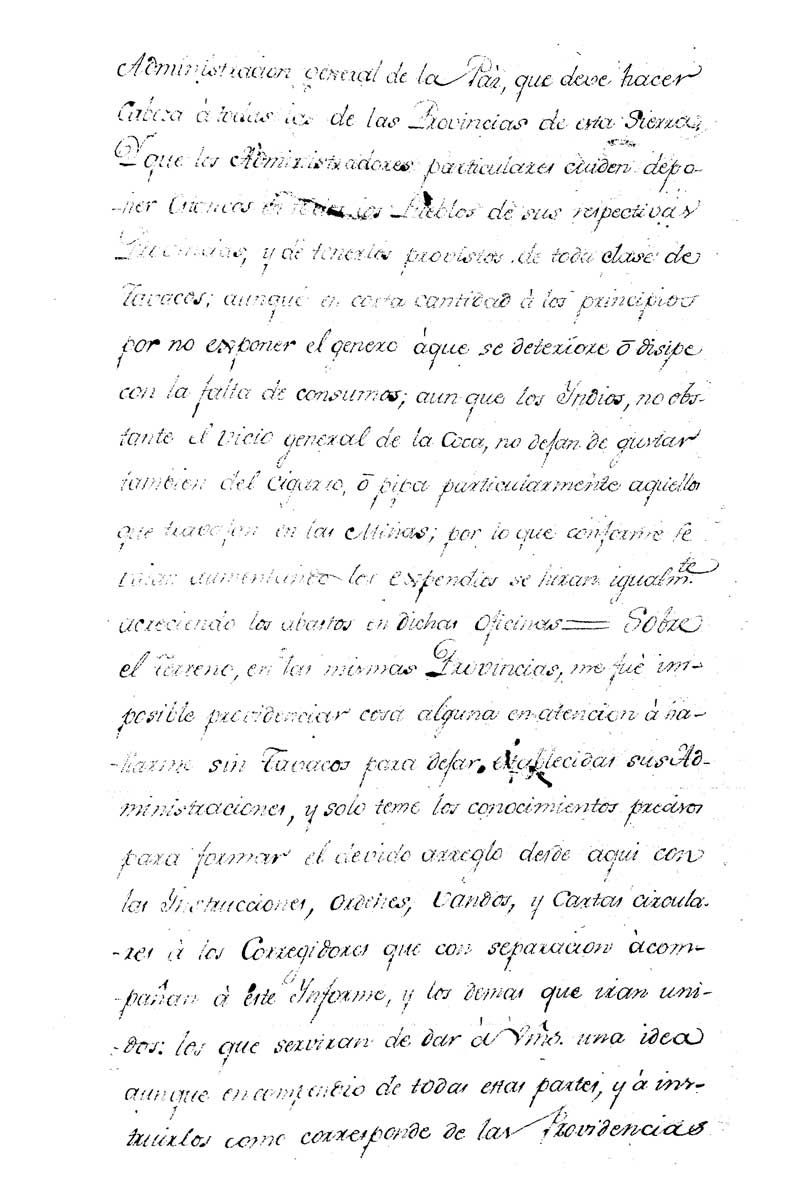 Administracion general de la Paz, que deve hacer
Cabeza à todas las de las Provincias de esta Sierra,
Y que los Administradores particulares cuiden depo-
-ner Estancos en todos los Pueblos de sus respectivas
Provincias, y de tenerlos provistos de toda clase de
Tavacos; aunque en corta cantidad à los principios
por no exponer el genero àque se deteriore ō disipe
con la falta de consumos; aun que los Yndios, no obs-
tante el vicio general de la Coca, no dejan de gustar
tambien del Cigarro, ō pipa particularmente aquellos
que travajan en las Minas; por lo que conforme se
vaian aumentando los expendios se hiran igualm.te
acreciendo los abastos en dichas Oficinas= Sobre
el terreno, en las mismas Provincias, me fuè im-
posible providenciar cosa alguna en atencion à ha-
-llarme sin Tavacos para dejar establecidas sus Ad-
ministraciones, y solo teme los conocimientos precisos
para formar el devido arreglo desde aqui con
las Ynstrucciones, Ordenes, Vandos, y Cartas circula-
-res à los Corregidores que con separacion àcom-
-pañan à èste Ynforme, y los demas que iran uni-
-dos: los que serviran de dar à Vms. una idea
aunque en compendio de todas estas partes, y à ins-
truirlos como corresponde de las Providencias